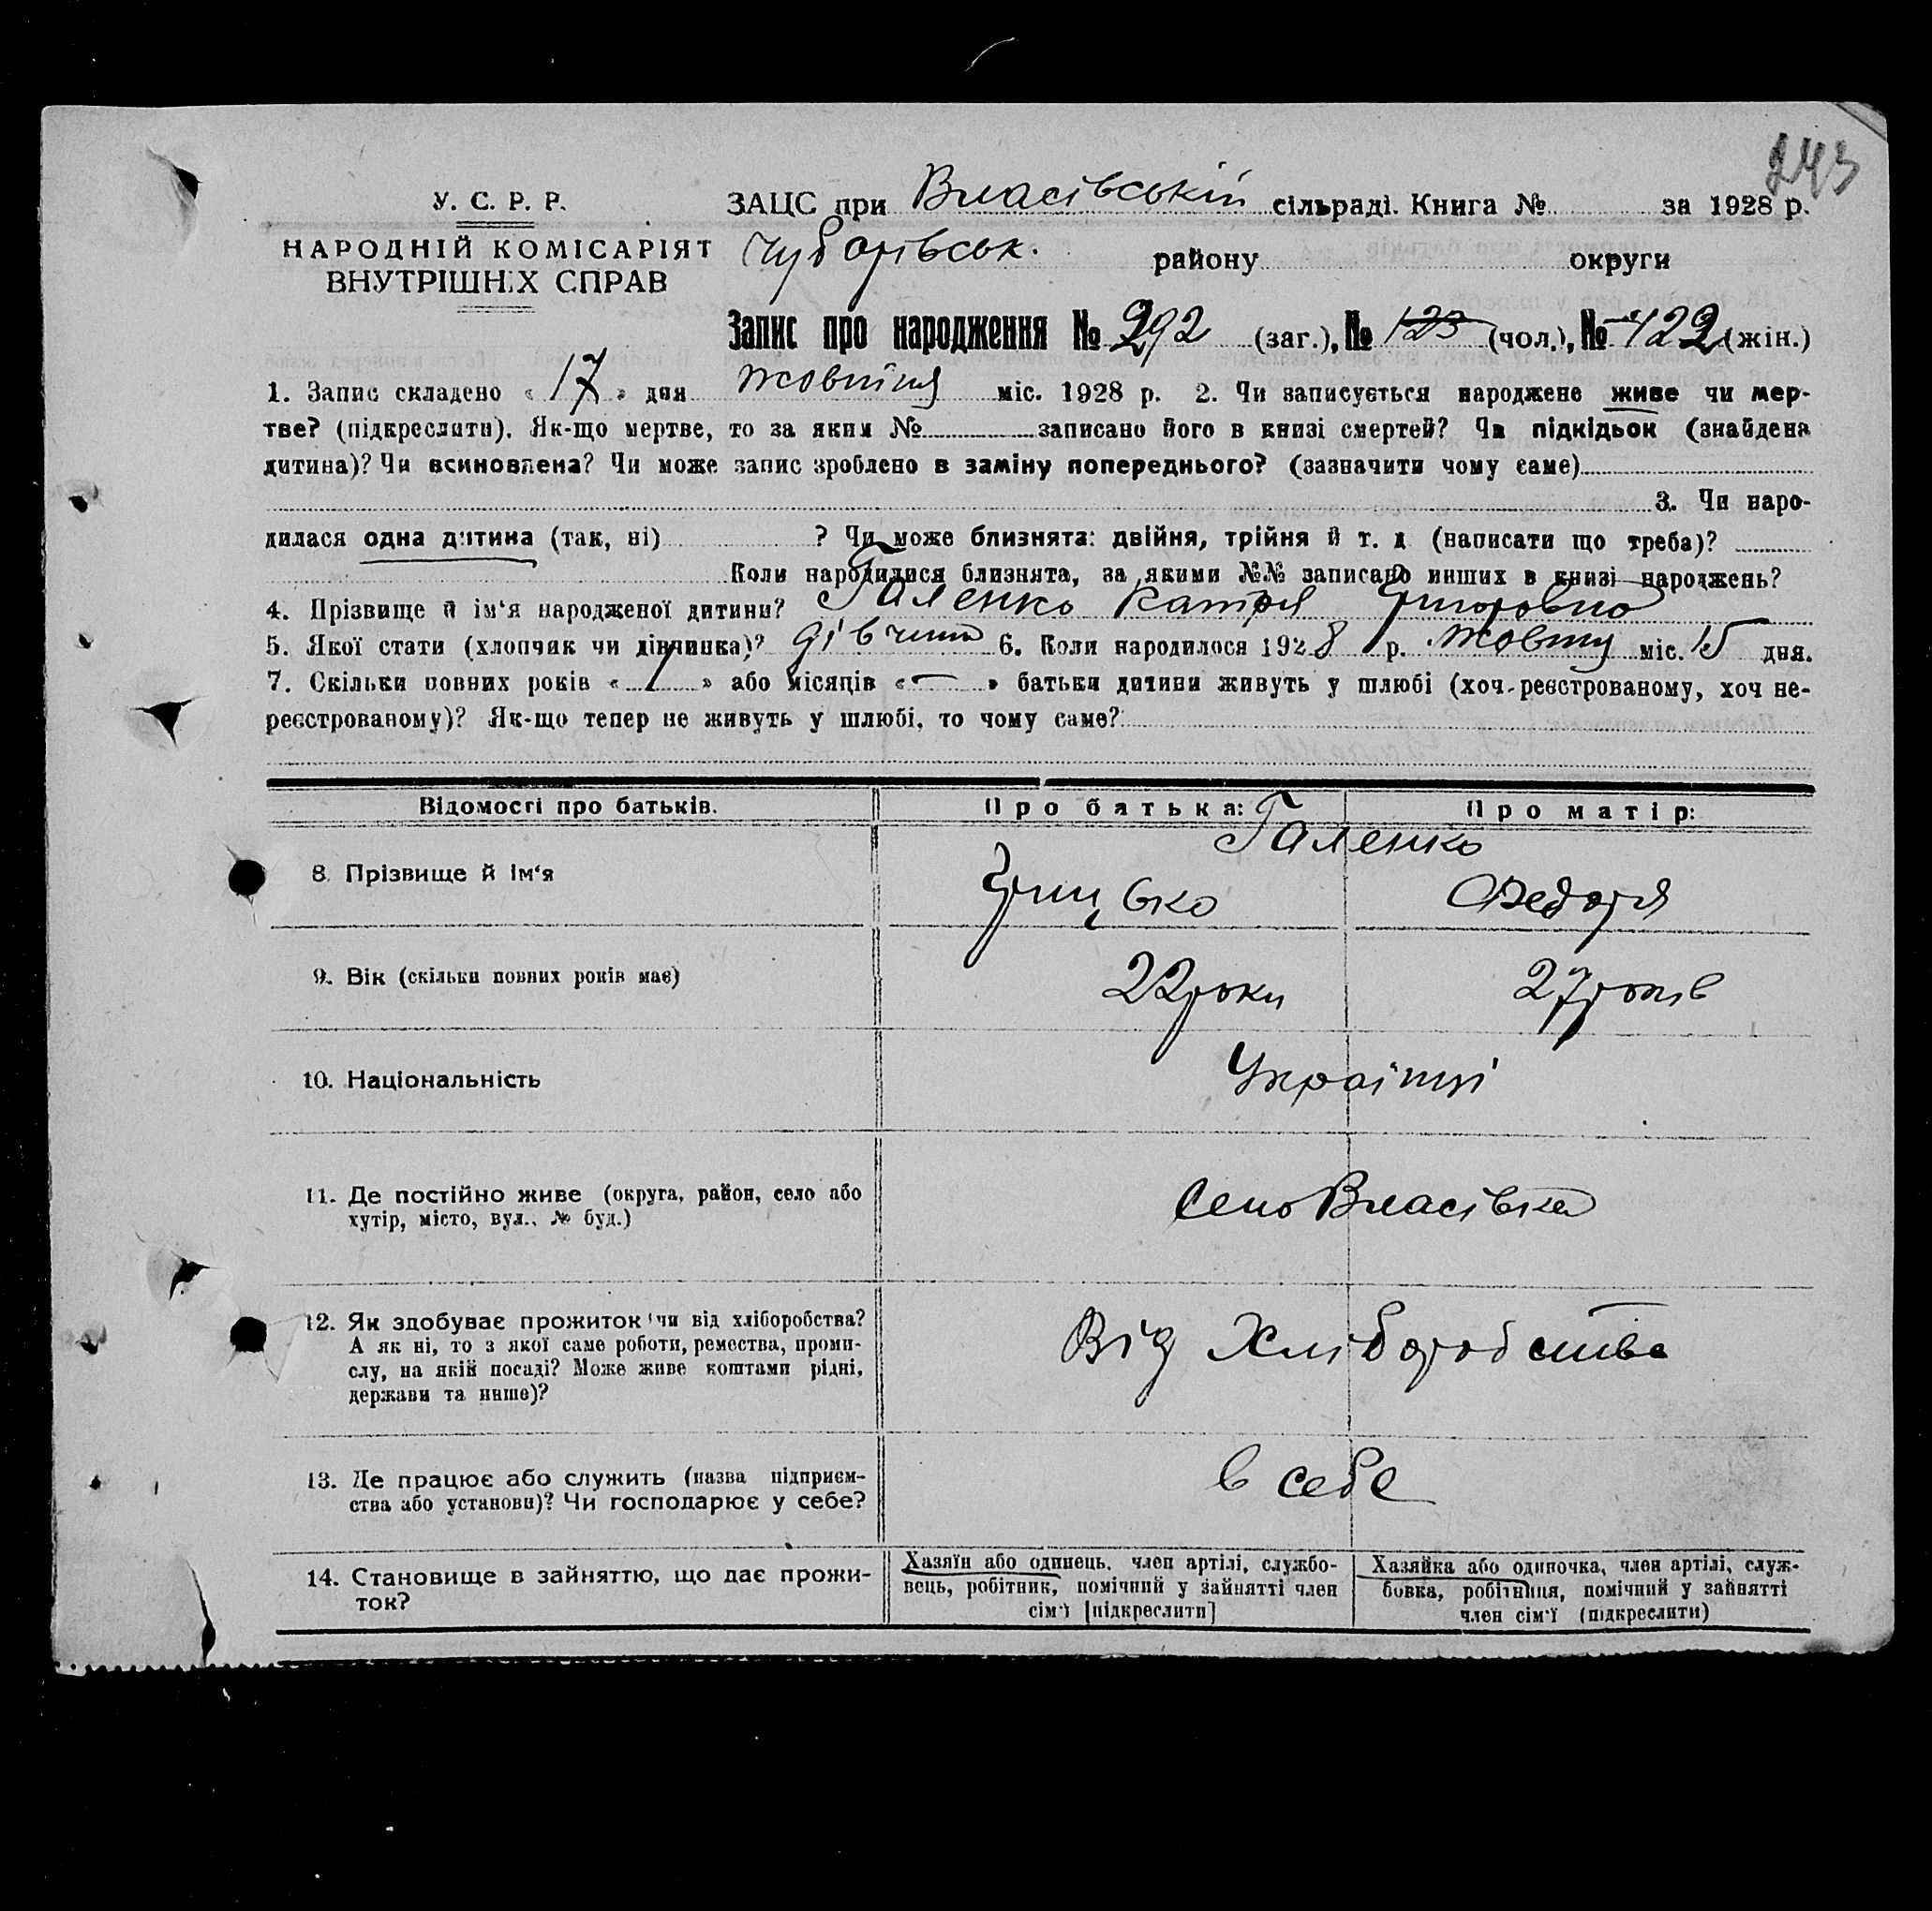 243
У. С. Р. Р.
НАРОДНІЙ КОМІСАРІЯТ
ВНУТРІШНІХ СПРАВ
ЗАЦС при Власівській сільраді. Книга № за 1928 р.
Чубарівськ. району округи
Запис про народження № 292 (заг.), № 123 (чол.), № 122 (жін.)
1. Запис складено « 17 » дня жовтня міс. 1928 р. 2. Чи записується народжене живе чи мер-
тве? (підкреслити). Як-що мертве, то за яким № записано його в книзі смертей? Чи підкідьок (знайдена
дитина)? Чи всиновлена? Чи може запис зроблено в заміну попереднього? (зазначити чому саме)
3. Чи наро-
дилася одна дитина (так, ні) ? Чи може близнята: двійня, трійня й т. д (написати що треба)?
Коли народилися близнята, за якими №№ записано инших в книзі народжень?
4. Прізвище й ім‘я народженої дитини? Галенко Катря Григоровна
5. Якої стати (хлопчик чи дівчинка)? дівчина 6. Коли народилося 1928 р. жовтня міс. 15 дня.
7. Скільки повних років « 1 » або місяців « — » батьки дитини живуть у шлюбі (хоч реєстрованому, хоч не-
реєстрованому)? Як-що тепер не живуть у шлюбі, то чому саме?
Відомості про батьків. Про батька: Про матір:
Галенко
8. Прізвище й ім‘я Грицько Федоря
9. Вік (скільки повних років має) 22 роки 27 років
10. Національність Українці
11. Де постійно живе (округа, район, село або
хутір, місто, вул., № буд.)
Село Власівка
12. Як здобуває прожиток чи від хліборобства?
А як ні, то з якої саме роботи, ремества, проми-
слу, на якій посаді? Може живе коштами рідні,
держави та инше)?
Від Хліборобства
13. Де працює або служить (назва підприєм-
ства або установи)? Чи господарює у себе?
в себе
14. Становище в зайняттю, що дає прожи-
ток?
Хазяїн або одинець, член артілі, службо-
вець, робітник, помічний у зайнятті член
сім‘ї [підкреслити]
Хазяйка або одиночка, член артілі, служ-
бовка, робітниця, помічний у зайнятті
член сім‘ї (підкреслити)